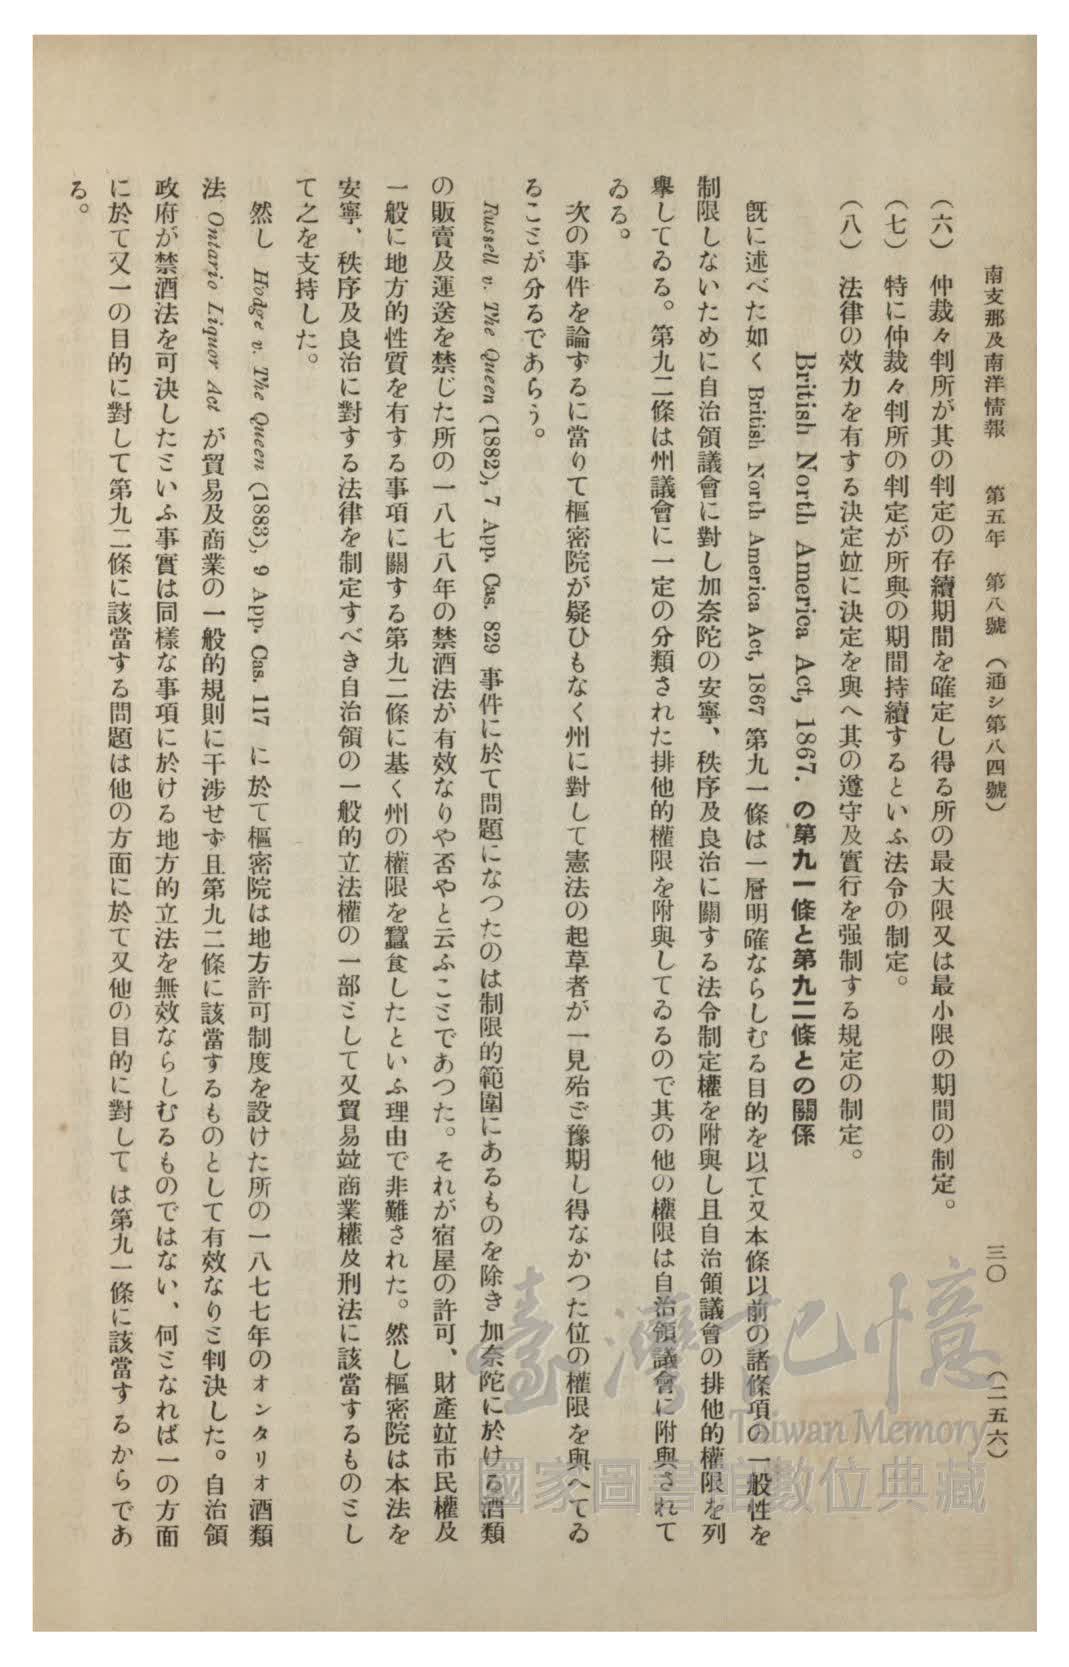 南支那及南洋情報　第五年　第八號　（通シ第八四號）　三〇　（二五六）
（六）　仲裁々判所が其の判定の存續期間を確定し得る所の最大限又は最小限の期間の制定。
（七）　特に仲裁々判所の判定が所與の期間持續するといふ法令の制定。
（八）　法律の效力を有する決定竝に決定を與へ其の遵守及實行を强制する規定の制定。
British North America Act, 1867. の第九一條と第九二條との關係
既に述べた如く British North America Act, 1867 第九一條は一層明確ならしむる目的を以て又本條以前の諸條項の一般性を
制限しないために自治領議會に對し加奈陀の安寧、秩序及良治に關する法令制定權を附與し且自治領議會の排他的權限を列
擧してゐる。第九二條は州議會に一定の分類された排他的權限を附與してゐるので其の他の權限は自治領議會に附與されて
ゐる。
次の事件を論ずるに當りて樞密院が疑ひもなく州に對して憲法の起草者が一見殆ど豫期し得なかつた位の權限を與へてゐ
ることが分るであらう。
Russell v. The Queen (1882), 7 App. Cas. 829 事件に於て問題になつたのは制限的範圍にあるものを除き加奈陀に於ける酒類
の販賣及運送を禁じた所の一八七八年の禁酒法が有效なりや否やと云ふことであつた。それが宿屋の許可、財產竝市民權及
一般に地方的性質を有する事項に關する第九二條に基く州の權限を蠶食したといふ理由で非難された。然し樞密院は本法を
安寧、秩序及良治に對する法律を制定すべき自治領の一般的立法權の一部として又貿易竝商業權及刑法に該當するものとし
て之を支持した。
然し Hodge v. The Queen (1883), 9 App. Cas. 117 に於て樞密院は地方許可制度を設けた所の一八七七年のオンタリオ酒類
法 Ontario Liquor Act が貿易及商業の一般的規則に干涉せず且第九二條に該當するものとして有效なりと判決した。自治領
政府が禁酒法を可決したといふ事實は同樣な事項に於ける地方的立法を無效ならしむるものではない、何となれば一の方面
に於て又一の目的に對して第九二條に該當する問題は他の方面に於て又他の目的に對しては第九一條に該當するからであ
る。
臺灣記憶
Taiwan Memory
國家圖書館數位典藏